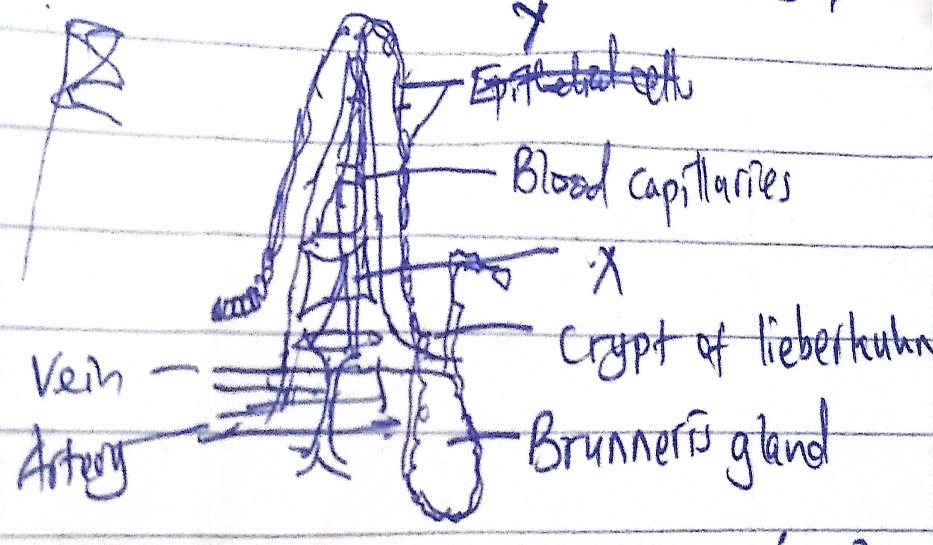 Y
Epithelial cells
Blood capillaries
X
Crypt of lieberkuhn
Vein
Artery
Brunner's gland